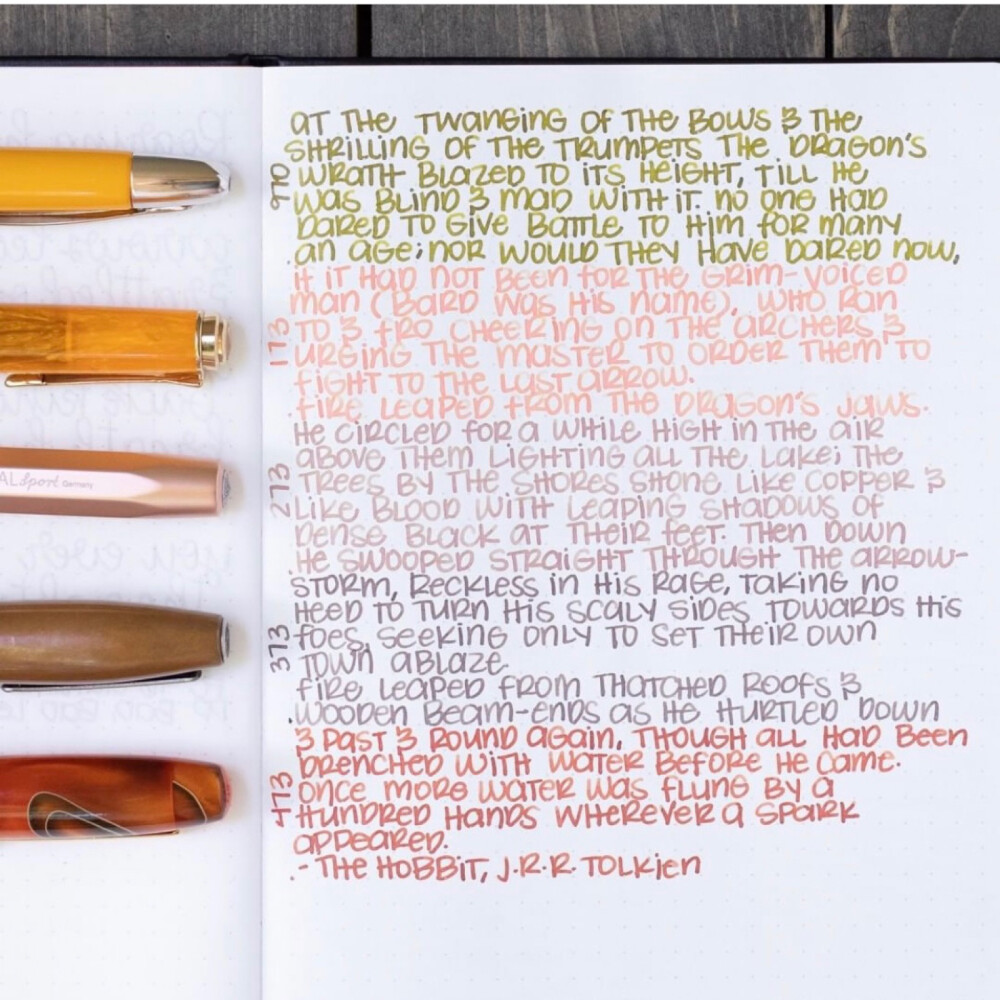 AT THE TWANGING OF THE BOWS & THE
SHRILLING OF THE TRUMPETS THE DRAGON'S
WRATH BLAZED TO ITS HEIGHT, TILL HE
WAS BLIND & MAD WITH IT. NO ONE HAD
DARED TO GIVE BATTLE TO HIM FOR MANY
AN AGE; NOR WOULD THEY HAVE DARED NOW,
IF IT HAD NOT BEEN FOR THE GRIM-VOICED
MAN (BARD WAS HIS NAME), WHO RAN
TO & FRO CHEERING ON THE ARCHERS &
URGING THE MASTER TO ORDER THEM TO
FIGHT TO THE LAST ARROW.
FIRE LEAPED FROM THE DRAGON'S JAWS.
HE CIRCLED FOR A WHILE HIGH IN THE AIR
ABOVE THEM LIGHTING ALL THE LAKE; THE
TREES BY THE SHORES SHONE LIKE COPPER &
LIKE BLOOD WITH LEAPING SHADOWS OF
DENSE BLACK AT THEIR FEET. THEN DOWN
HE SWOOPED STRAIGHT THROUGH THE ARROW-
STORM, RECKLESS IN HIS RAGE, TAKING NO
HEED TO TURN HIS SCALY SIDES TOWARDS HIS
FOES, SEEKING ONLY TO SET THEIR OWN
TOWN ABLAZE.
FIRE LEAPED FROM THATCHED ROOFS &
WOODEN BEAM-ENDS AS HE HURTLED DOWN
& PAST & ROUND AGAIN, THOUGH ALL HAD BEEN
DRENCHED WITH WATER BEFORE HE CAME.
ONCE MORE WATER WAS FLUNG BY A
HUNDRED HANDS WHEREVER A SPARK
APPEARED.
- THE HOBBIT, J.R.R. TOLKIEN
970
173
273
373
473
AL Sport Germany